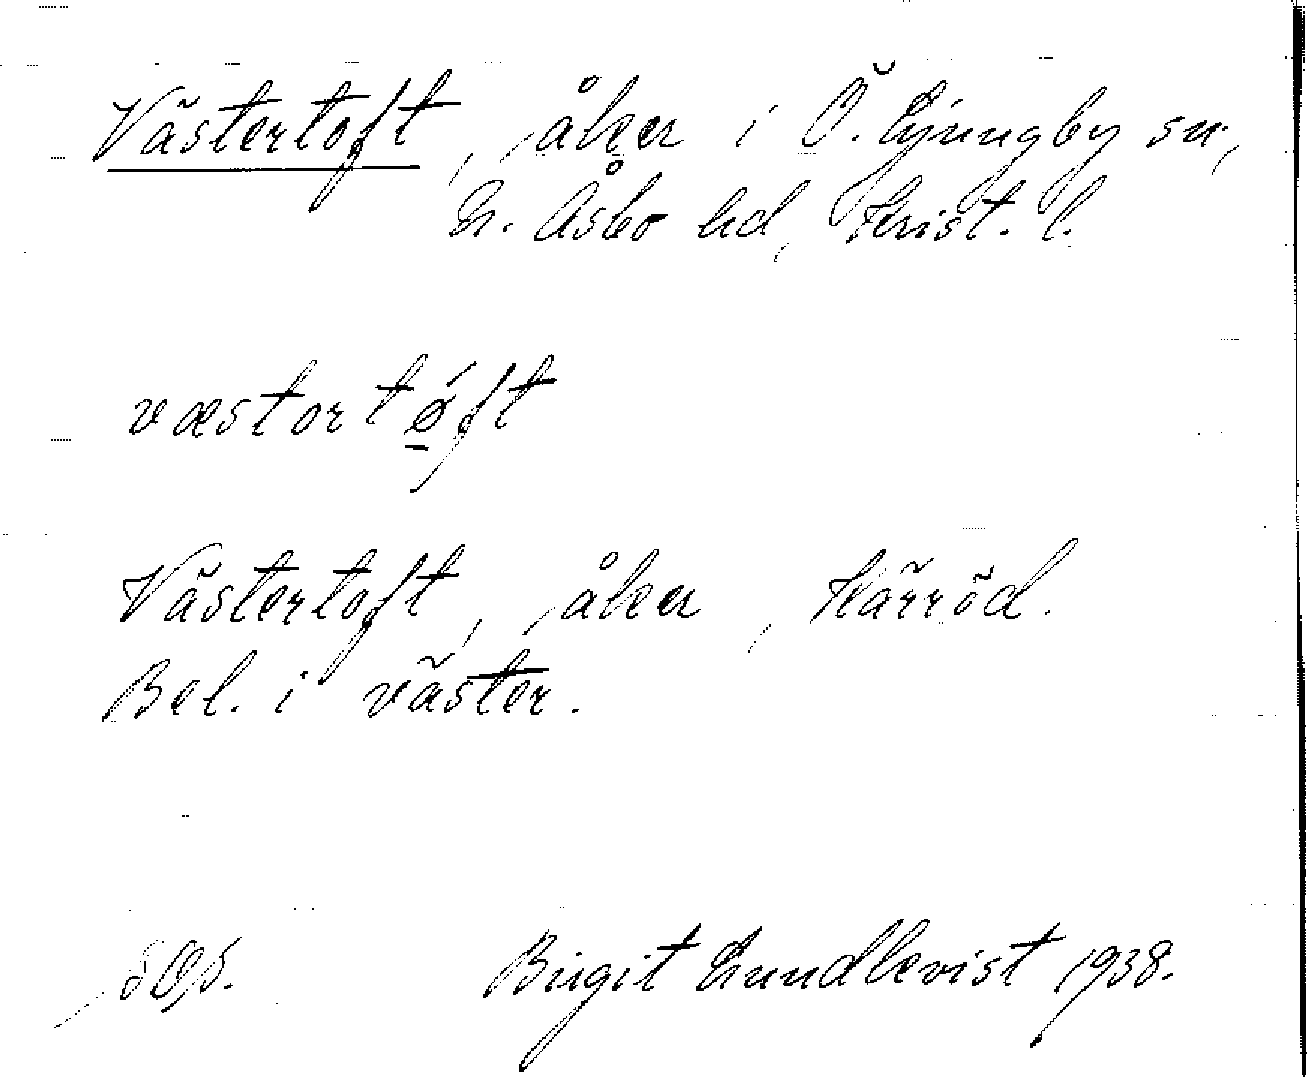 Västertoft, åker i Ö. Ljungby sn,
N. Åsbo hd, Krist. l.
væstortǿft
Västertoft, åker, Härröd.
Bel. i väster.
Birgit Lundkvist 1938.